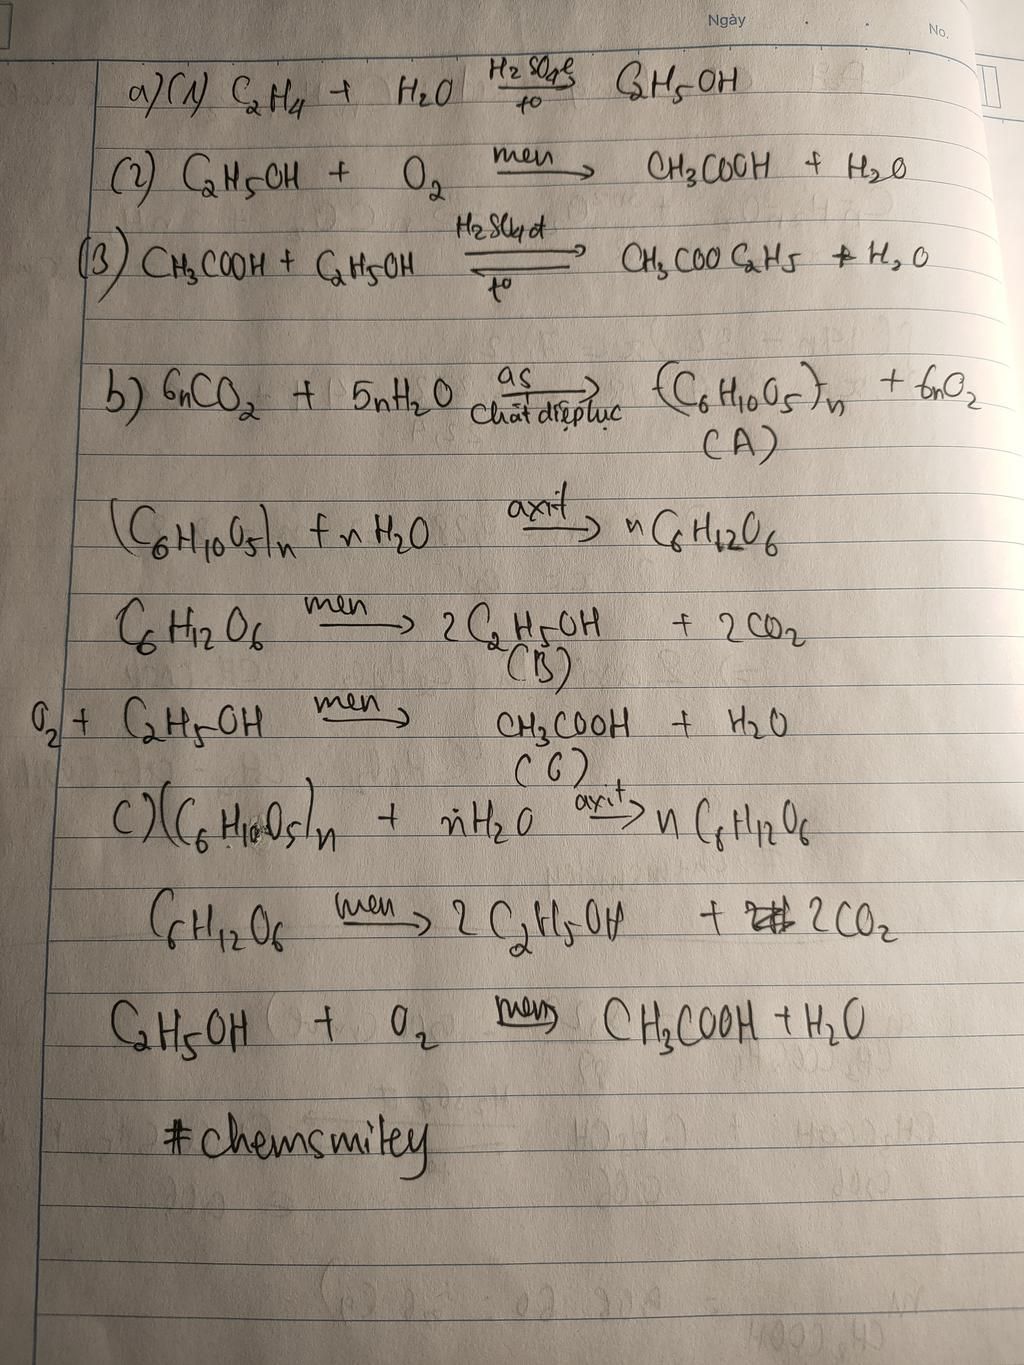 Ngày . . No.
a) (1) C2H4 + H2O H2SO4đ/t° C2H5OH
(2) C2H5OH + O2 men→ CH3COOH + H2O
(3) CH3COOH + C2H5OH H2SO4đ⇌t° CH3COOC2H5 + H2O
b) 6nCO2 + 5nH2O as→Chất diệp lục (C6H10O5)n + 6nO2
(A)
(C6H10O5)n + nH2O axit→ nC6H12O6
C6H12O6 men→ 2C2H5OH + 2CO2
(B)
O2 + C2H5OH men→ CH3COOH + H2O
(C)
c) (C6H10O5)n + nH2O axit→ nC6H12O6
C6H12O6 men→ 2C2H5OH + 2CO2
C2H5OH + O2 men→ CH3COOH + H2O
#chemsmiley